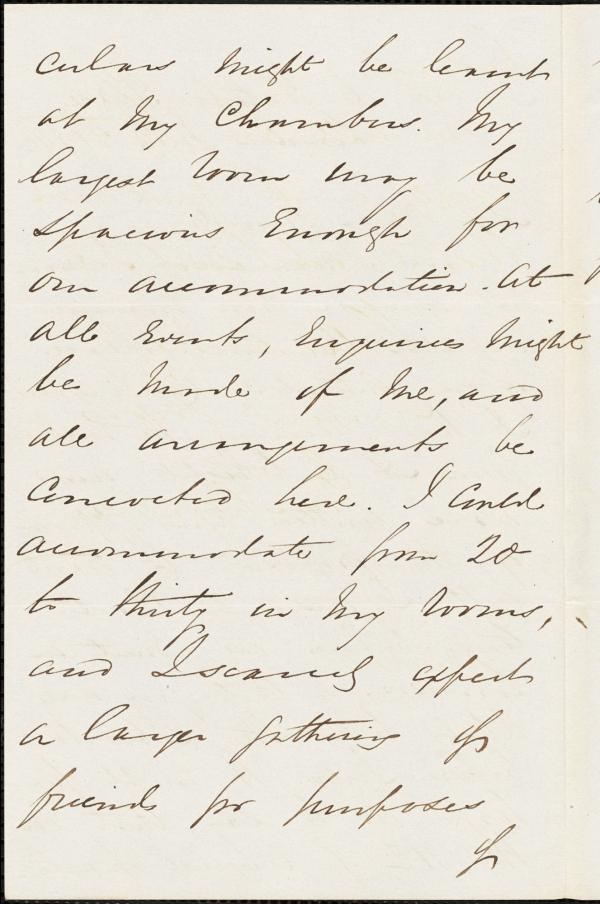 culars might be learnt
at my Chambers. My
largest room may be
spacious Enough for
our accommodation. At
all Events, Enquiries might
be made of me, and
all arrangements be
concocted here. I could
accommodate from 20
to thirty in my rooms,
and I scarcely expect
a larger gathering of
friends for purposes
of